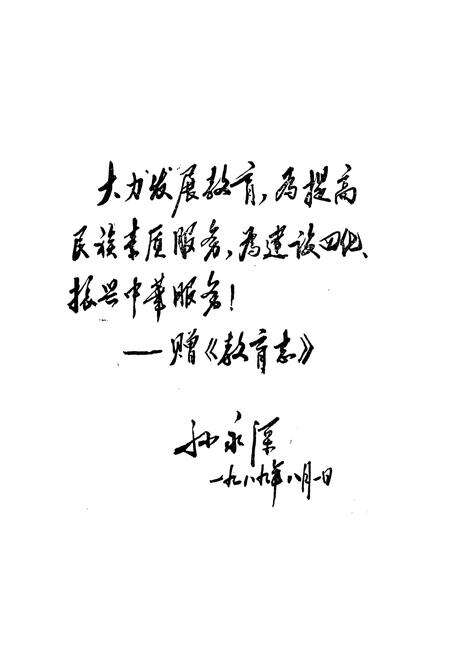 大力发展教育,为提高
民族素质服务,为建设四化、
振兴中華服务!
——赠《教育志》
孙永深
一九八九年八月一日